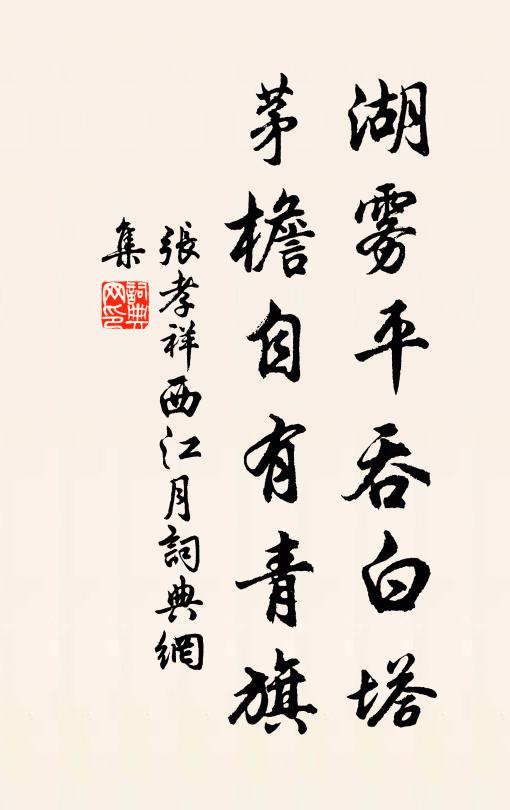 湖雾平吞白塔
茅檐自有青旗
張孝祥西江月詞典網
集
詞典网印